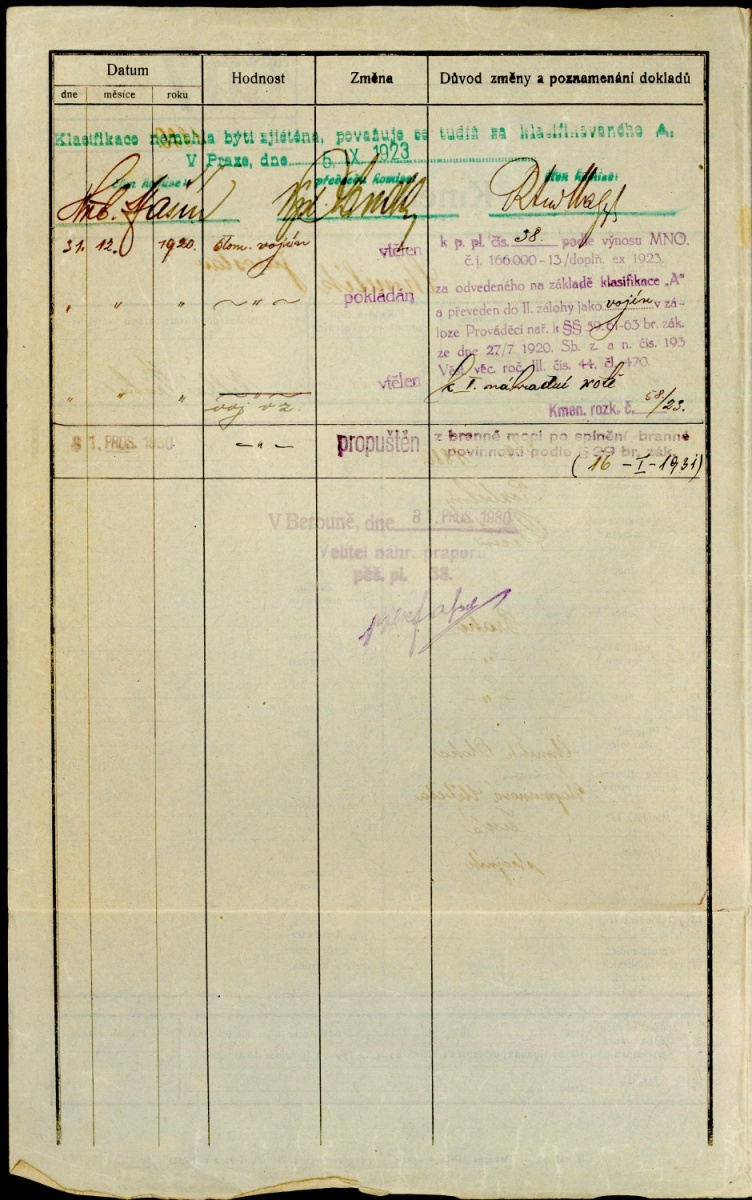 Datum
Hodnost
Změna
Důvod změny a poznamenání dokladů
dne měsíce roku
Klasifikace nemohla býti zjištěna, považuje se tudíž za klasifikovaného A.
V Praze, dne 6. IX. 1923
člen komise: předseda komise: člen komise:
31. 12. 1920. vojín vtělen k p. pl. čís. 38. podle výnosu MNO.
č.j. 166.000-13/doplň. ex 1923.
" " " " pokládán za odvedeného na základě klasifikace „A"
a převeden do II. zálohy jako vojín v zá-
loze Prováděcí nař. k §§ 59, 61-63 br. zák.
ze dne 27/7. 1920. Sb. z. a n. čís. 193
Věst. věc. roč. III. čís. 44, čl. 470.
" " " voj. v z. vtělen k I. náhradní rotě
Kmen. rozk. č. 58/23.
31. PROS. 1930. " propuštěn z branné moci po splnění branné
povinnosti podle § 29 br. zák.
(16-I-1931)
V Berouně, dne 31. PROS. 1930.
Velitel náhr. praporu
pěš. pl. 38.